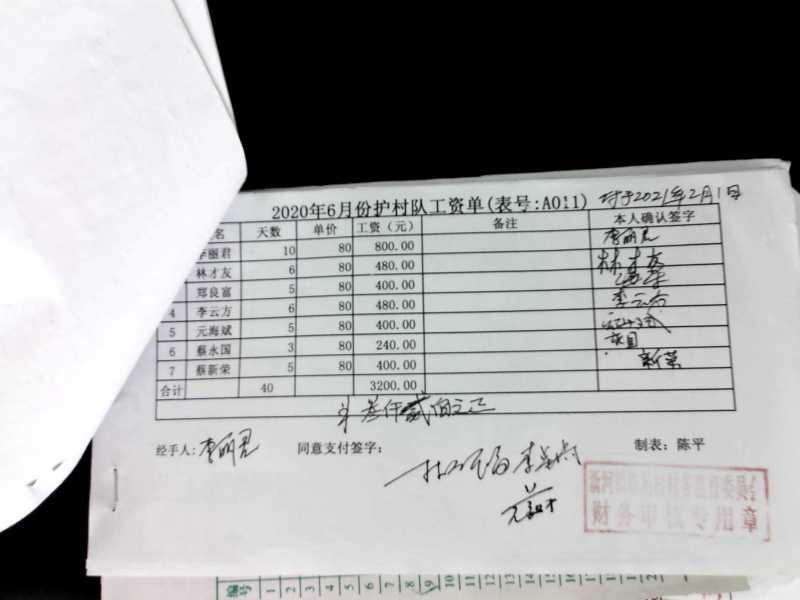 2020年6月份护村队工资单(表号:A011) 付于2021年2月1日
名 天数 单价 工资（元） 备注 本人确认签字
李丽君 10 80 800.00 李丽君
林才友 6 80 480.00 林才友
郑良富 5 80 400.00
4 李云方 6 80 480.00 李云方
5 元海斌 5 80 400.00
6 蔡永国 3 80 240.00
7 蔡新荣 5 80 400.00 新荣
合计 40 3200.00
叁仟贰佰元正
经手人: 李丽君 同意支付签字: 制表: 陈平
财务审核专用章
编号 1 2 3 4 5 6 7 8 9 10 11 12 13 14 15 16 17 18 19